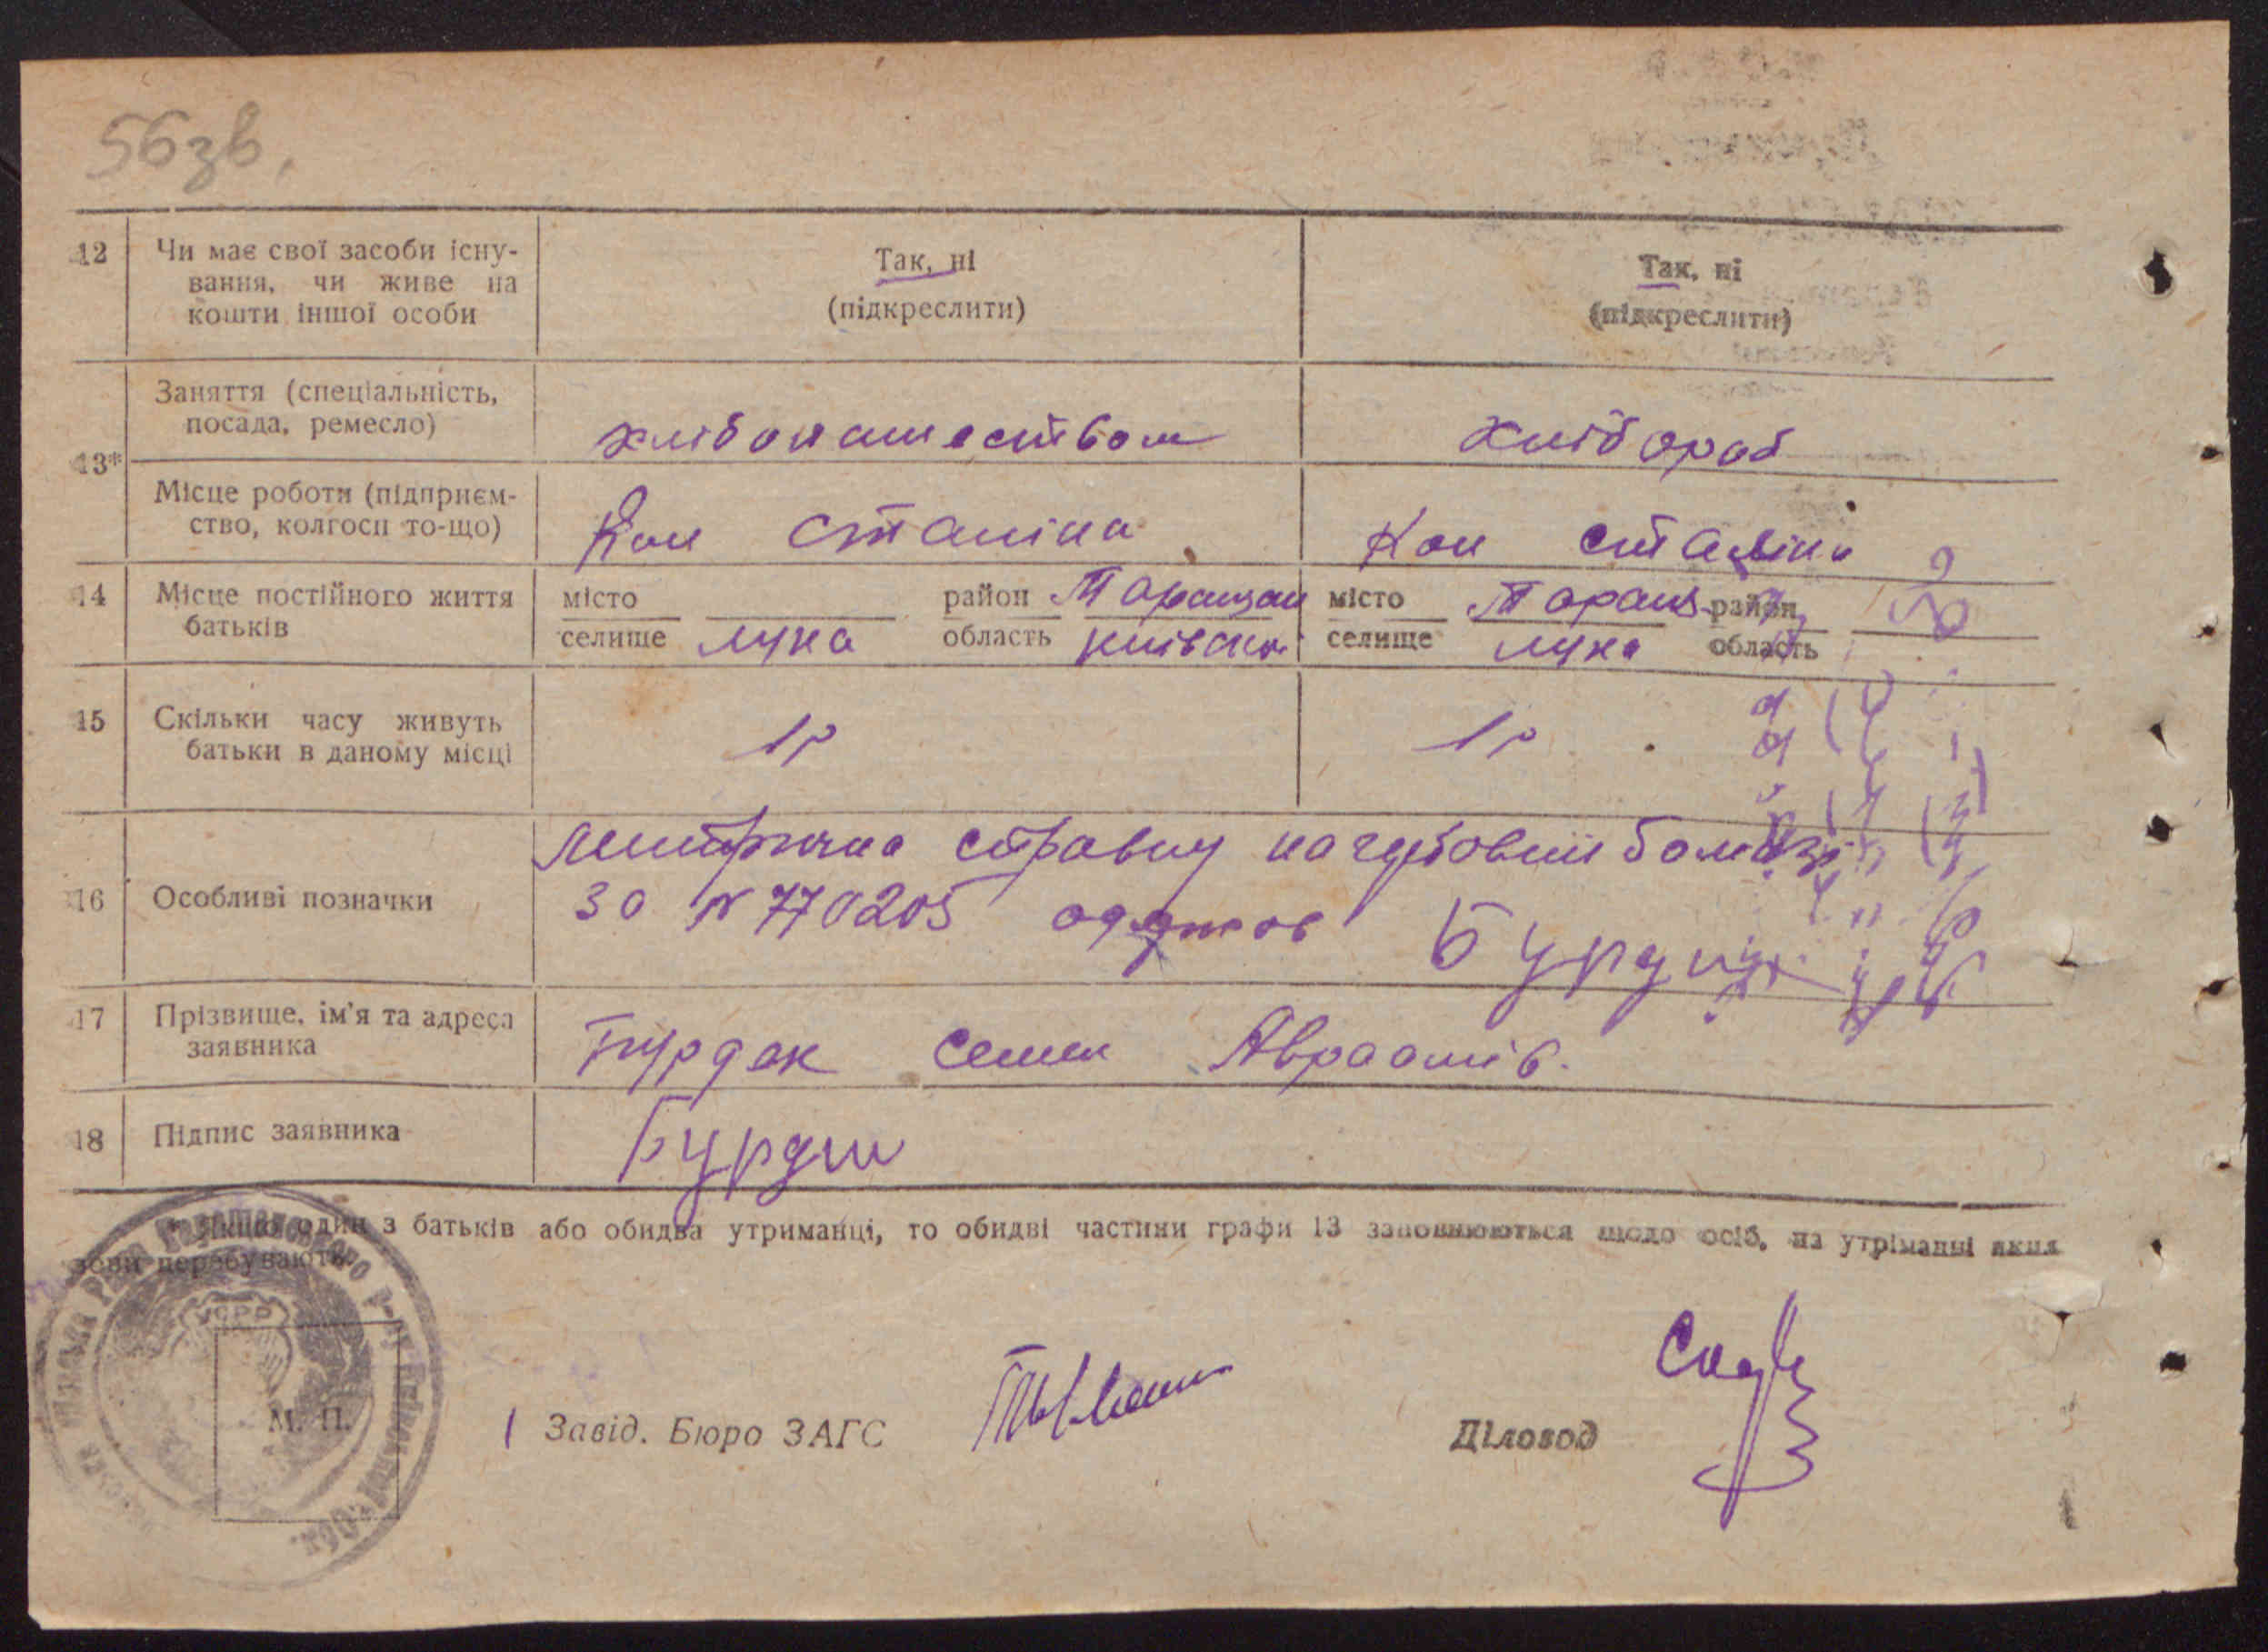 56зв.
12 Чи має свої засоби існу-
вання, чи живе на
кошти іншої особи
Так, ні
(підкреслити)
Так, ні
(підкреслити)
13*
Заняття (спеціальність,
посада, ремесло)
хлібопашеством
хлібороб
Місце роботи (підприєм-
ство, колгосп то-що)
Кол Сталіна
Кол Сталіна
14 Місце постійного життя
батьків
місто район Таращан
селище Лука область київска
місто Таращ район
селище Лука область
15 Скільки часу живуть
батьки в даному місці
1р
1р
16 Особливі позначки
справку на гербовий
30 № 770205 Бурд
17 Прізвище, ім'я та адреса
заявника
Бурдак Семен Авраамів.
18 Підпис заявника
* Якщо один з батьків або обидва утриманці, то обидві частини графи 13 заповнюються щодо осіб, на утріманні яких
вони перебувають.
УСРР
М. П.
Завід. Бюро ЗАГС
Діловод